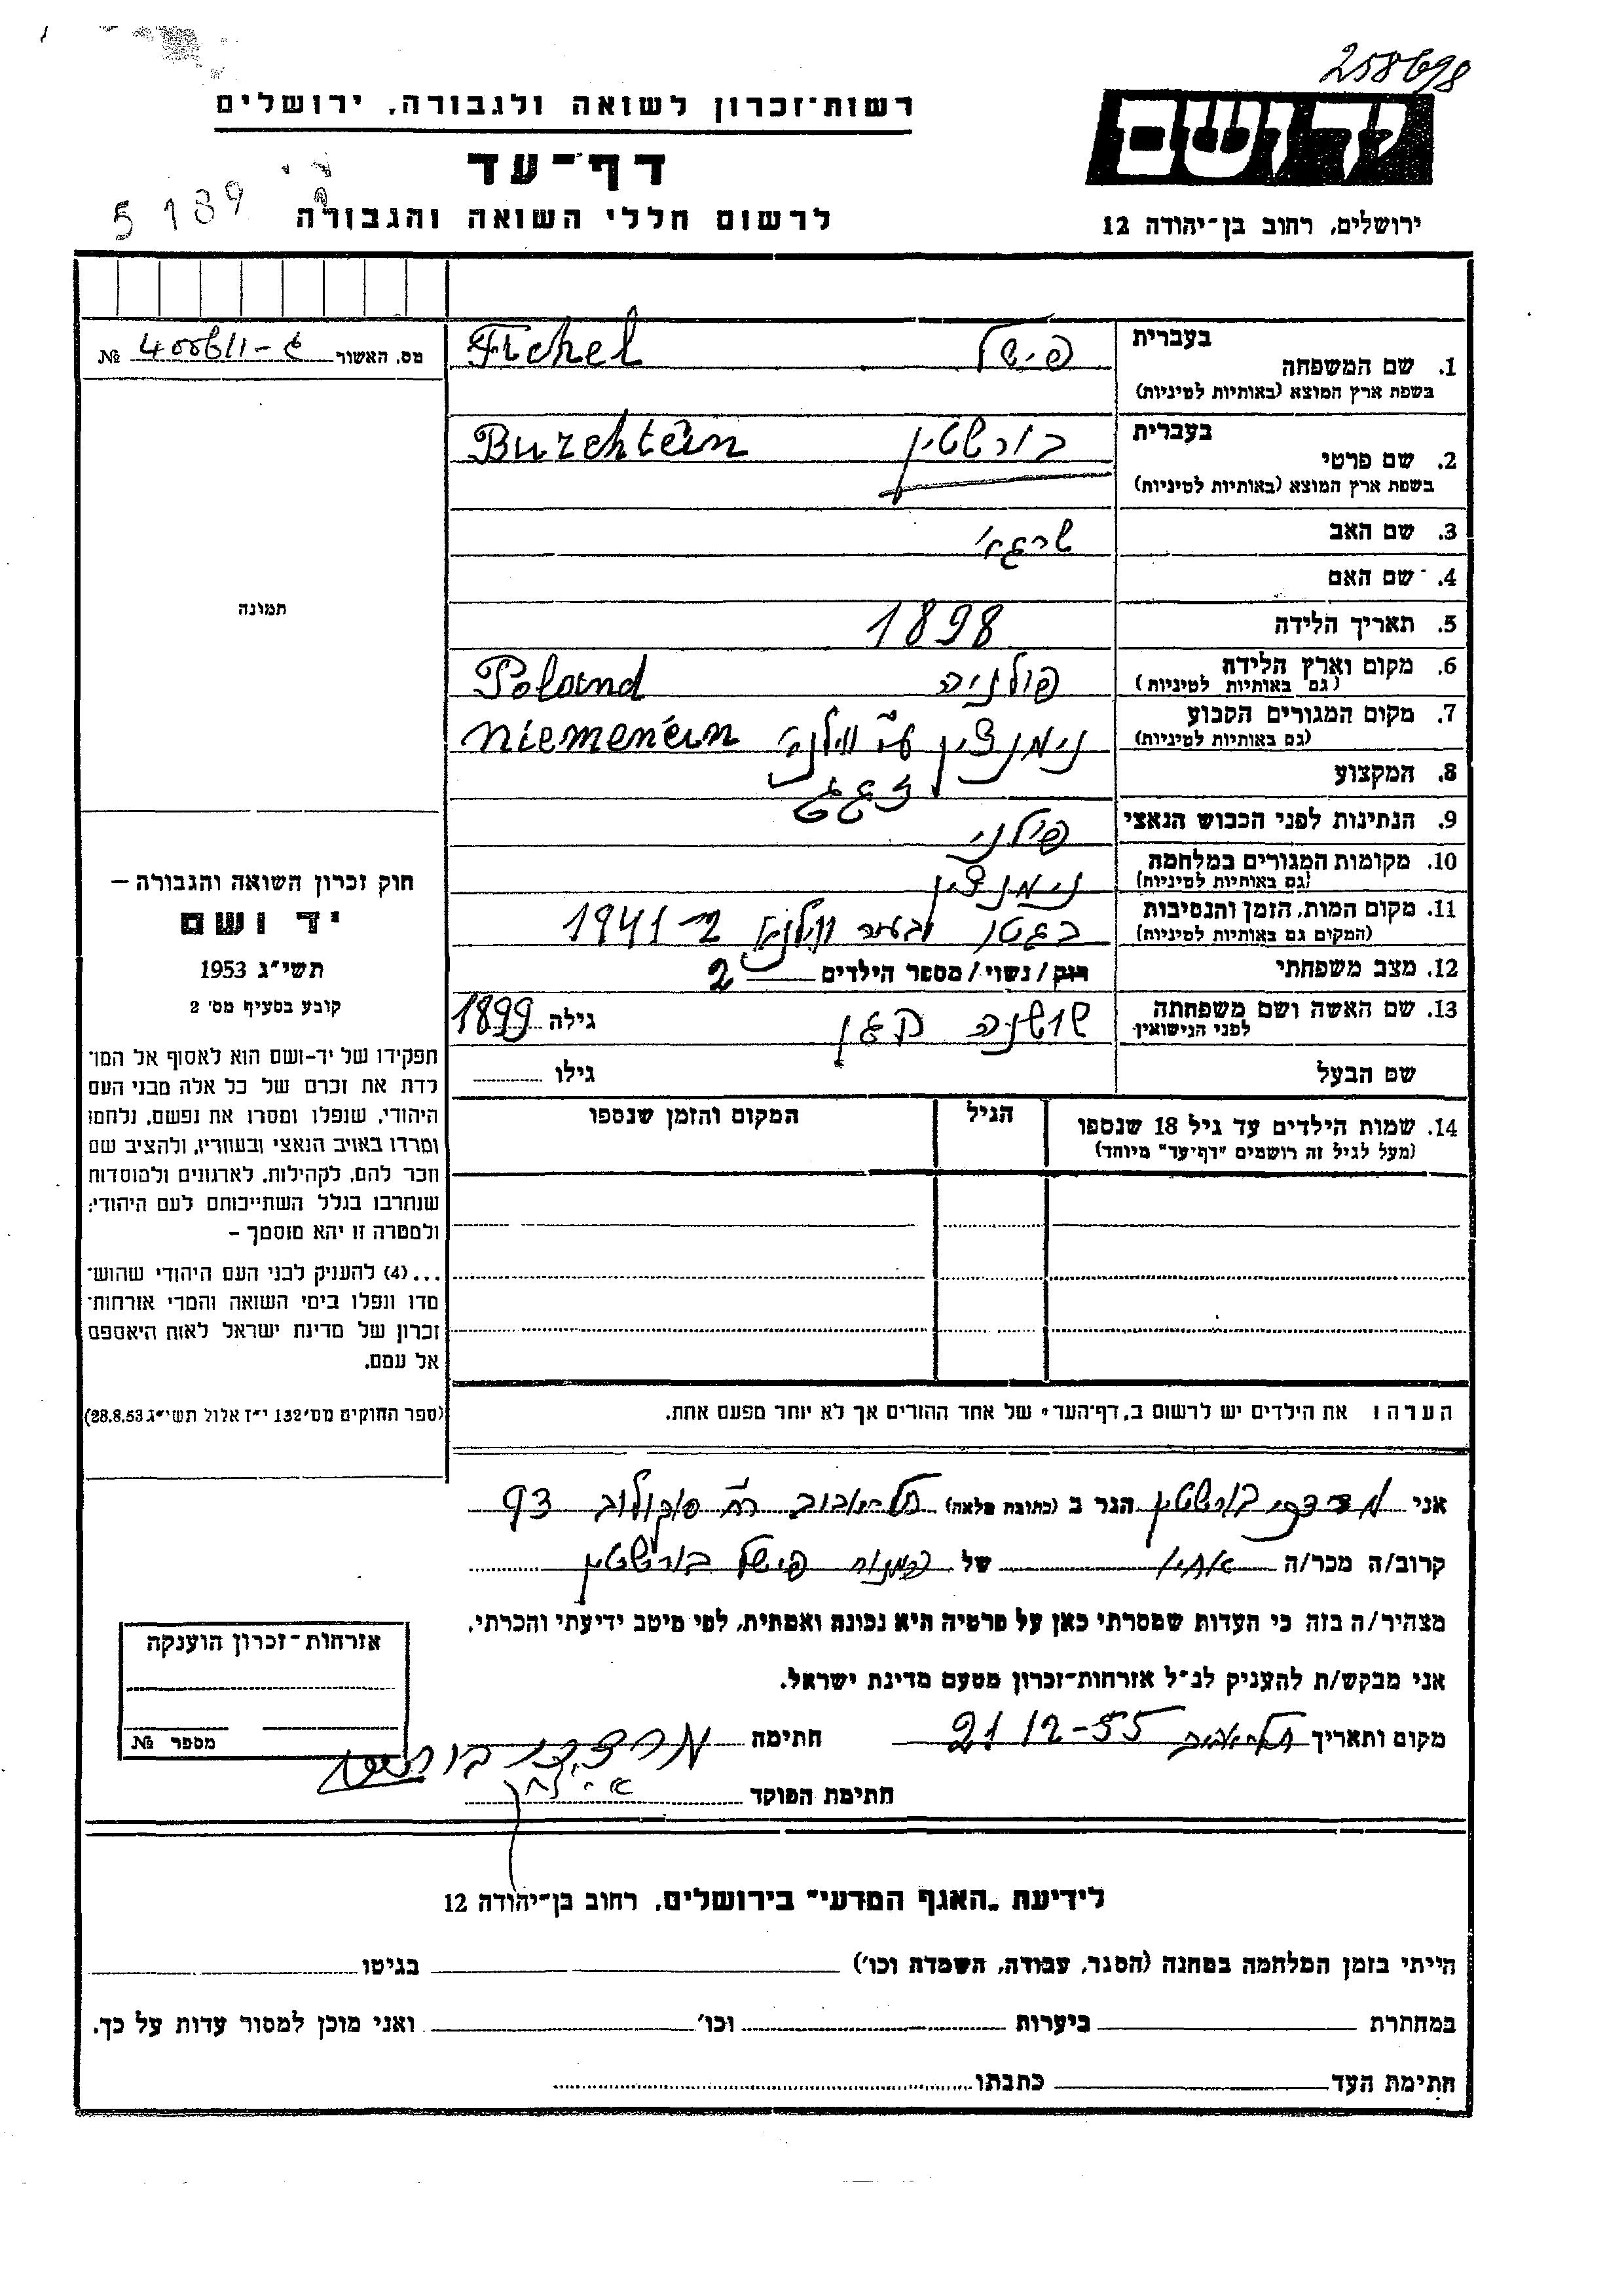 258698
רשות־זכרון לשואה ולגבורה, ירושלים
יד ושם
דף־עד
5 189
לרשום חללי השואה והגבורה
ירושלים, רחוב בן־יהודה 12
מס. האשור №
בעברית
1. שם המשפחה
(בשפת ארץ המוצא (באותיות לטיניות
פישל Fichel
בעברית
2. שם פרטי
(בשפת ארץ המוצא (באותיות לטיניות
בורשטין Burchtein
3. שם האב
4. שם האם
תמונה
5. תאריך הלידה 1898
6. מקום וארץ הלידה פולניה Poland
(גם באותיות לטיניות)
7. מקום המגורים הקבוע נימנצין ע"י ווילנה
(גם באותיות לטיניות)
8. המקצוע זגג
9. הנתינות לפני הכבוש הנאצי פולני
10. מקומות המגורים במלחמה נימנצין
(גם באותיות לטיניות)
11. מקום המות, הזמן והנסיבות בגטו ווילנה ב־1941
(המקום גם באותיות לטיניות)
12. מצב משפחתי רווק/נשוי/מספר הילדים 2
13. שם האשה ושם משפחתה שושנה כגן גילה 1899
לפני הנישואין
שם הבעל גילו
14. שמות הילדים עד גיל 18 שנספו הגיל המקום והזמן שנספו
(מעל לגיל זה רושמים "דף־עד" מיוחד)
הערה: את הילדים יש לרשום ב„דף־העד" של אחד ההורים אך לא יותר מפעם אחת.
חוק זכרון השואה והגבורה –
יד ושם
תשי"ג 1953
קובע בסעיף מס' 2
תפקידו של יד-ושם הוא לאסוף אל המו־
לדת את זכרם של כל אלה מבני העם
היהודי, שנפלו ומסרו את נפשם, נלחמו
ומרדו באויב הנאצי ובעוזריו, ולהציב שם
וזכר להם, לקהילות, לארגונים ולמוסדות
שנחרבו בגלל השתייכותם לעם היהודי;
ולמטרה זו יהא מוסמך –
...(4) להעניק לבני העם היהודי שהוש־
מדו ונפלו בימי השואה והמרי אזרחות־
זכרון של מדינת ישראל לאות היאספם
אל עמם.
(ספר החוקים מס' 132 י"ז אלול תשי"ג 28.8.53)
אני מרדכי בורשטין הגר ב (כתובת מלאה) תל־אביב רח' סוקולוב
קרוב/ה מכר/ה אחיו של המנוח פישל בורשטין
מצהיר/ה בזה כי העדות שמסרתי כאן על פרטיה היא נכונה ואמתית, לפי מיטב ידיעתי והכרתי.
אני מבקש/ת להעניק לנ"ל אזרחות־זכרון מטעם מדינת ישראל.
מקום ותאריך תל־אביב 21 12-55 חתימה מרדכי
חתימת הפוקד
אזרחות־זכרון הוענקה
מספר №
לידיעת „האגף המדעי" בירושלים, רחוב בן־יהודה 12
הייתי בזמן המלחמה במחנה (הסגר, עבודה, השמדת וכו') בגיטו
במחתרת ביערות וכו' ואני מוכן למסור עדות על כך.
חתימת העד כתבתו